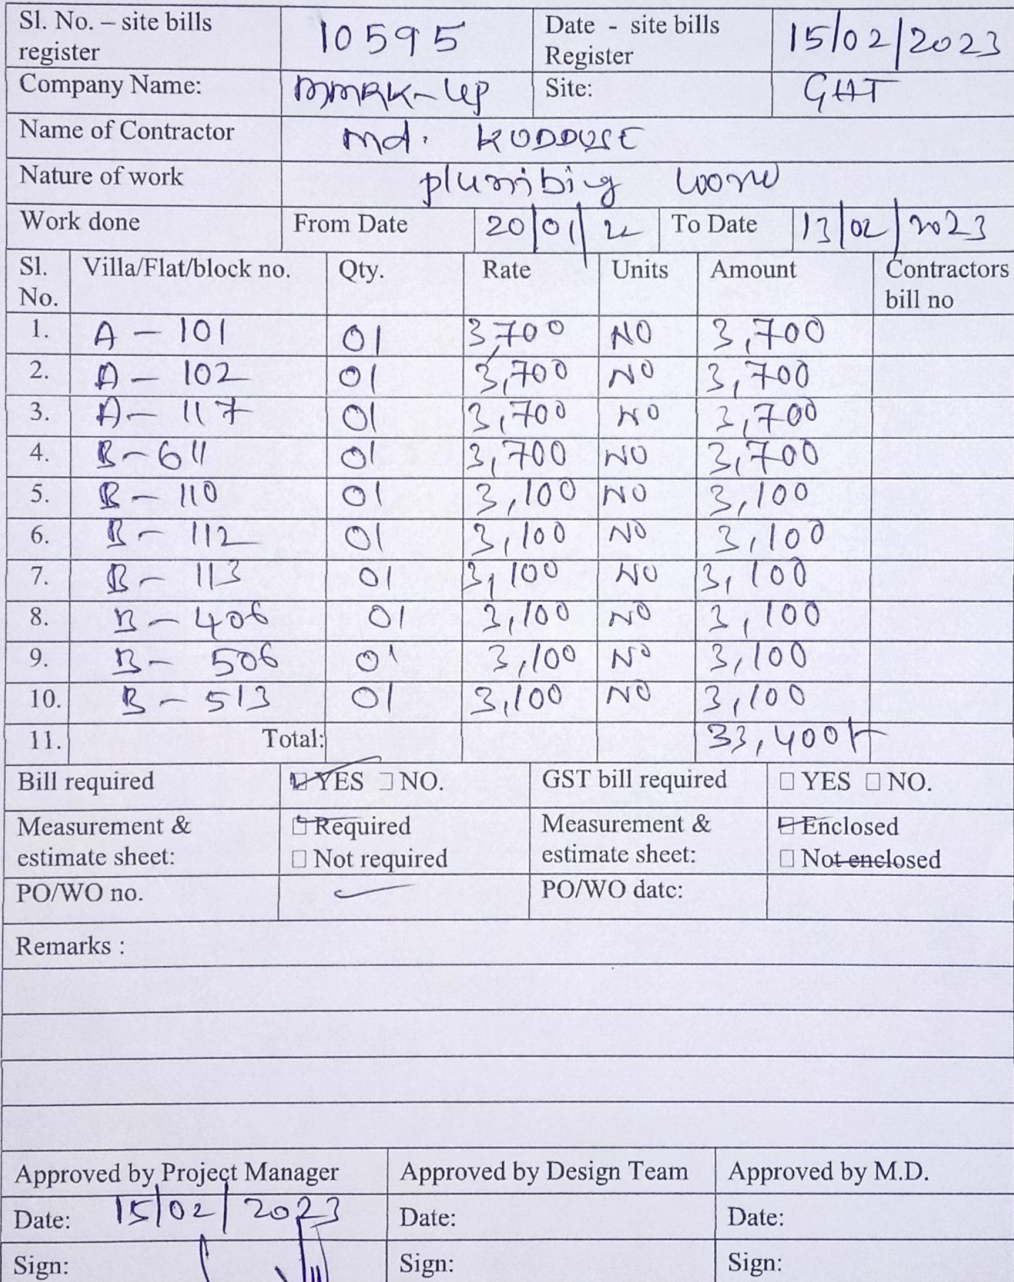 Sl. No. – site bills register 10595 Date - site bills Register 15/02/2023
Company Name: MMRK-Up Site: GHT
Name of Contractor Md. KUDDUSE
Nature of work plumbing
Work done From Date 20/01/22 To Date 13/02/2023
Sl. No. Villa/Flat/block no. Qty. Rate Units Amount Contractors bill no
1. A - 101 01 3,700 NO 3,700
2. A - 102 01 3,700 NO 3,700
3. A - 117 01 3,700 NO 3,700
4. B - 611 01 3,700 NO 3,700
5. B - 110 01 3,100 NO 3,100
6. B - 112 01 3,100 NO 3,100
7. B - 113 01 3,100 NO 3,100
8. B - 406 01 3,100 NO 3,100
9. B - 506 01 3,100 NO 3,100
10. B - 513 01 3,100 NO 3,100
11. Total: 33,400/-
Bill required YES NO. GST bill required YES NO.
Measurement & estimate sheet: Required Not required Measurement & estimate sheet: Enclosed Not enclosed
PO/WO no. PO/WO date:
Remarks :
Approved by Project Manager Approved by Design Team Approved by M.D.
Date: 15/02/2023 Date: Date:
Sign: Sign: Sign: